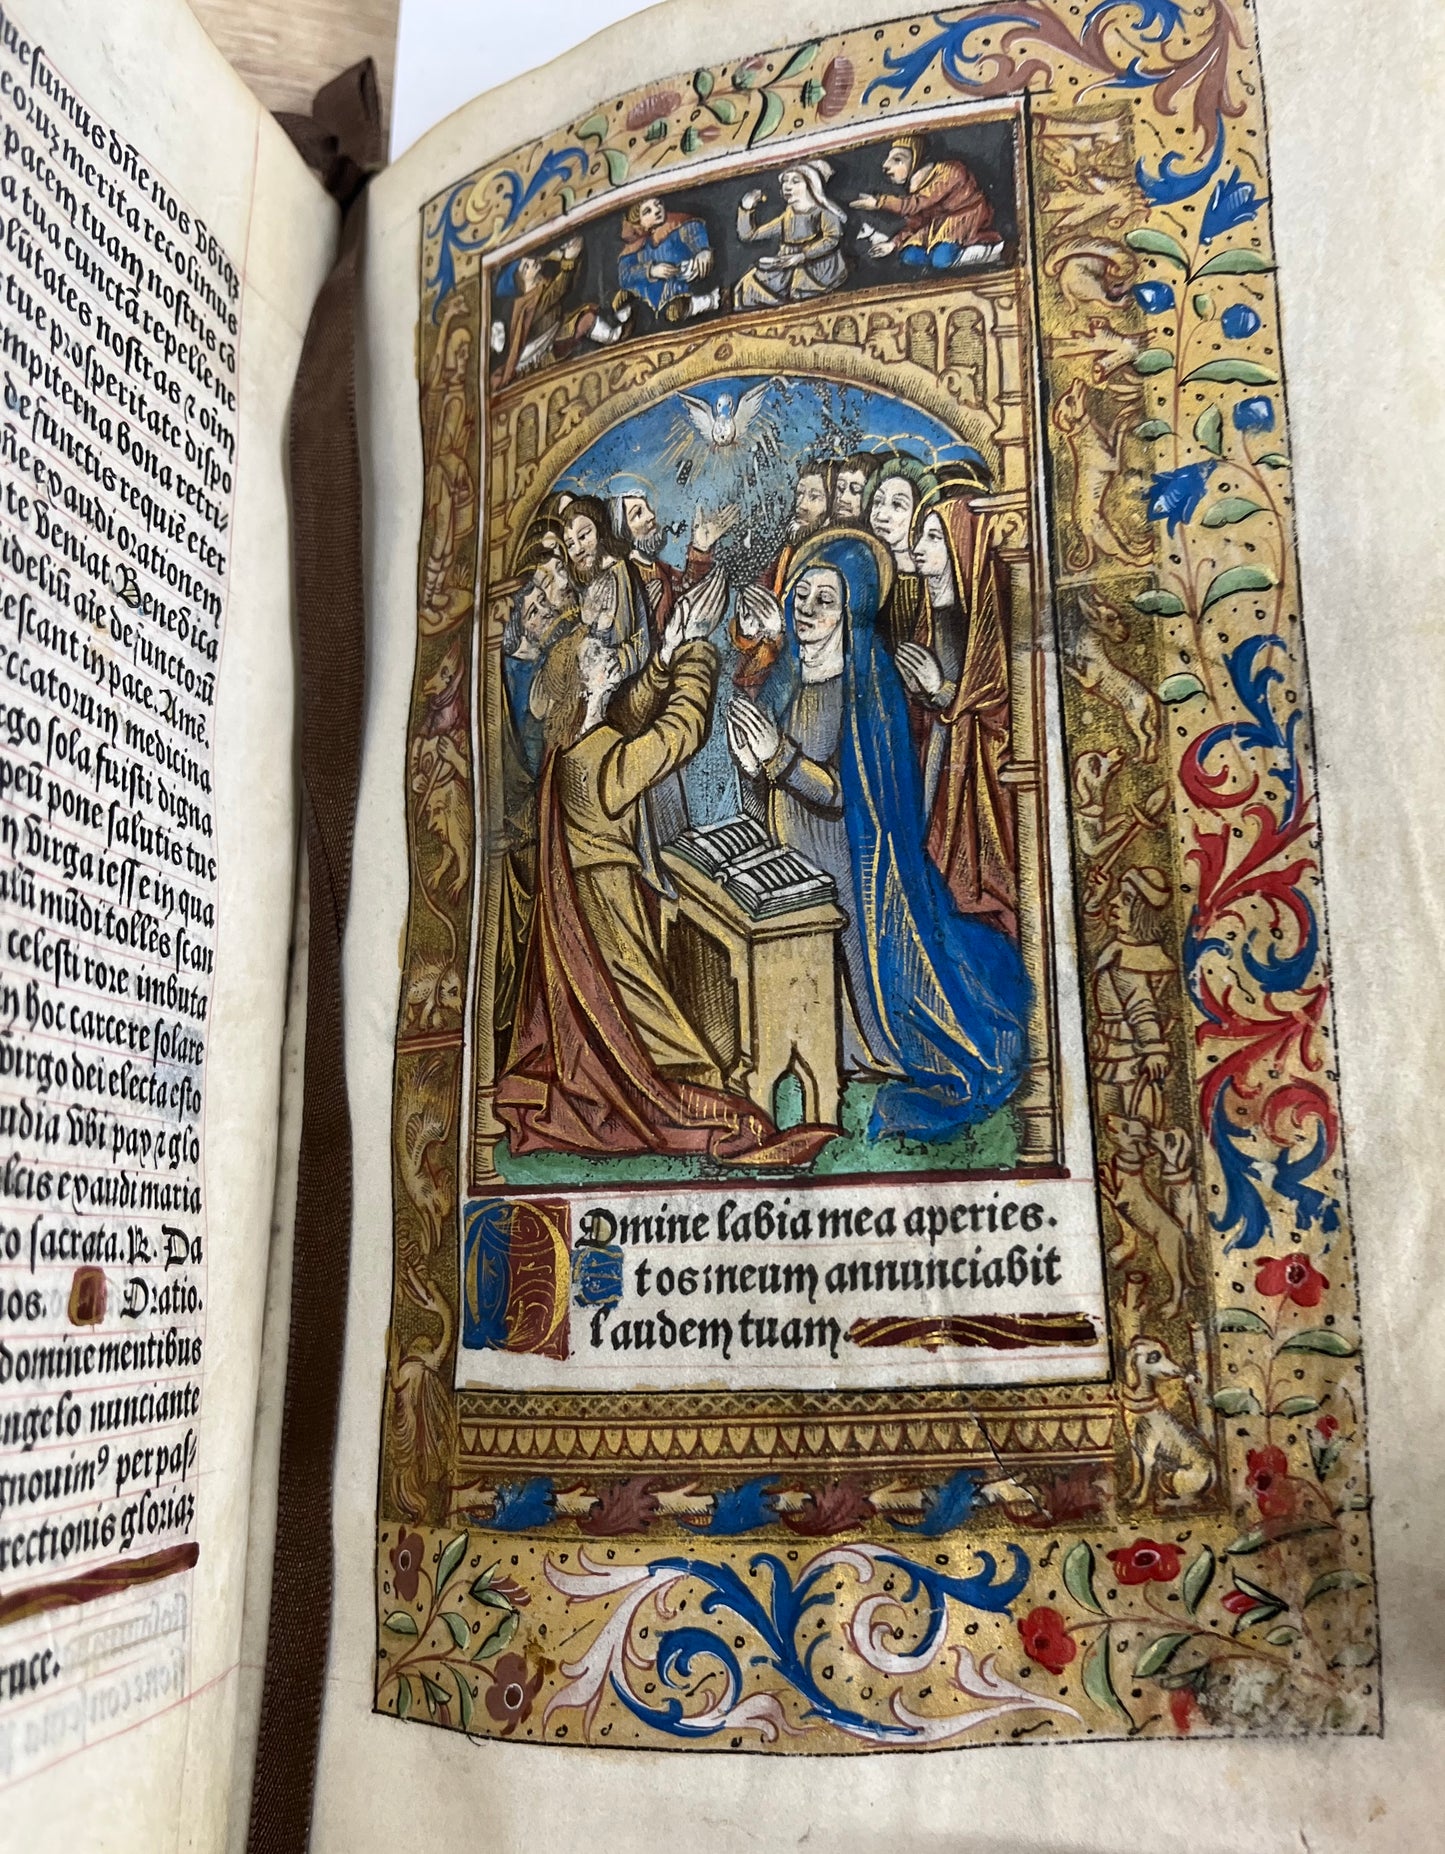 quesumus dñe nos vbiqz
merita recolimus
pacem tuam nostris cō
a tua cunctā repelle ne
nostras z oim
tue prosperitate dispo
bona retri-
defunctis requiē eter
exaudi orationem
te veniat. Benedica
fideliū aīe defunctorū
in pace. Amē.
peccatorum medicina
sola fuisti digna
pone salutis tue
virga iesse in qua
mūdi tollēs scan
celesti rore imbuta
in hoc carcere solare
virgo dei electa esto
vbi pax z glo
exaudi maria
sacrata. R. Da
Oratio.
domine mentibus
angelo nunciante
perpas-
gloriaz
Domine labia mea aperies.
Et os meum annunciabit
laudem tuam.